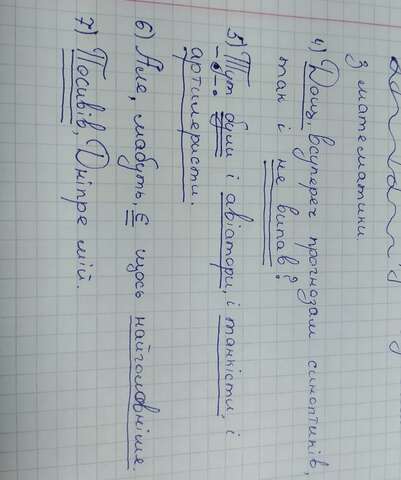 з математики
4) Дощ, всупереч прогнозам синоптиків,
так і не випав?
5) Тут були і авіатори, і танкісти, і
артилеристи.
6) Але, мабуть, є щось найголовніше.
7) Посивів, Дніпре мій.